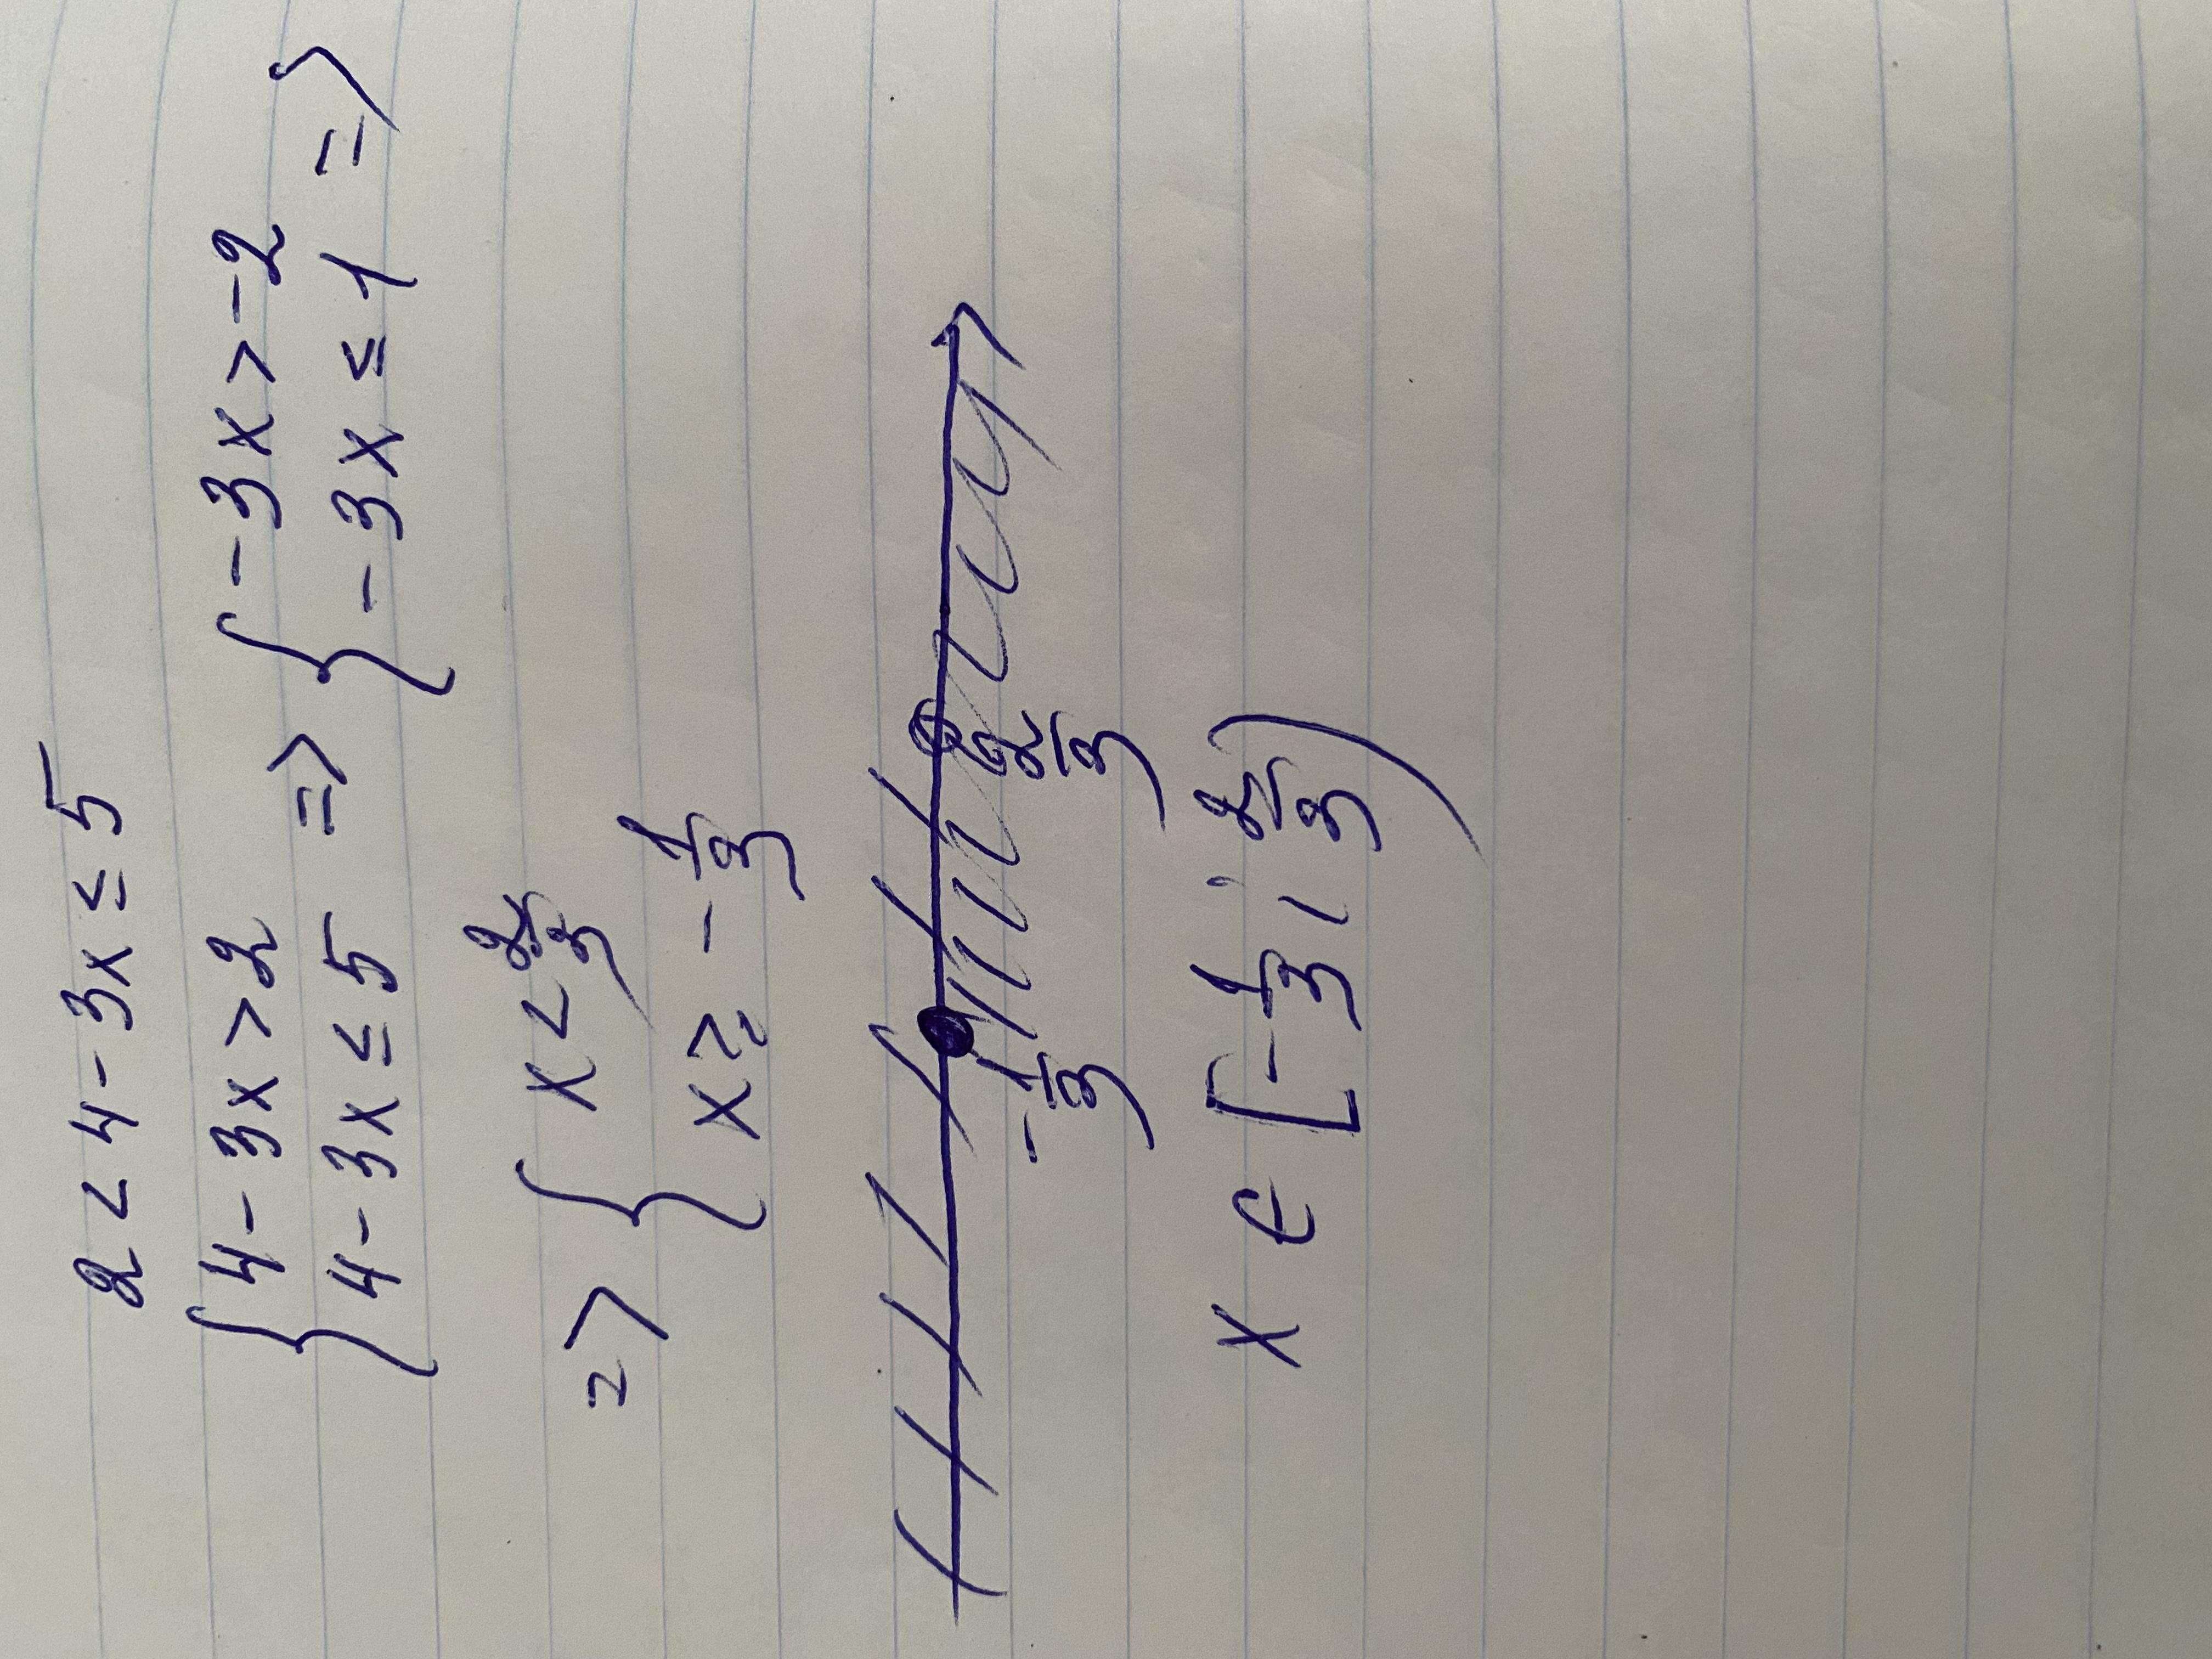 2 < 4 - 3x ≤ 5
{ 4 - 3x > 2 => { -3x > -2
{ 4 - 3x ≤ 5 => { -3x ≤ 1 =>
=> { x < 2/3
{ x ≥ - 1/3
-1/3 2/3
x ∈ [-1/3 ; 2/3)